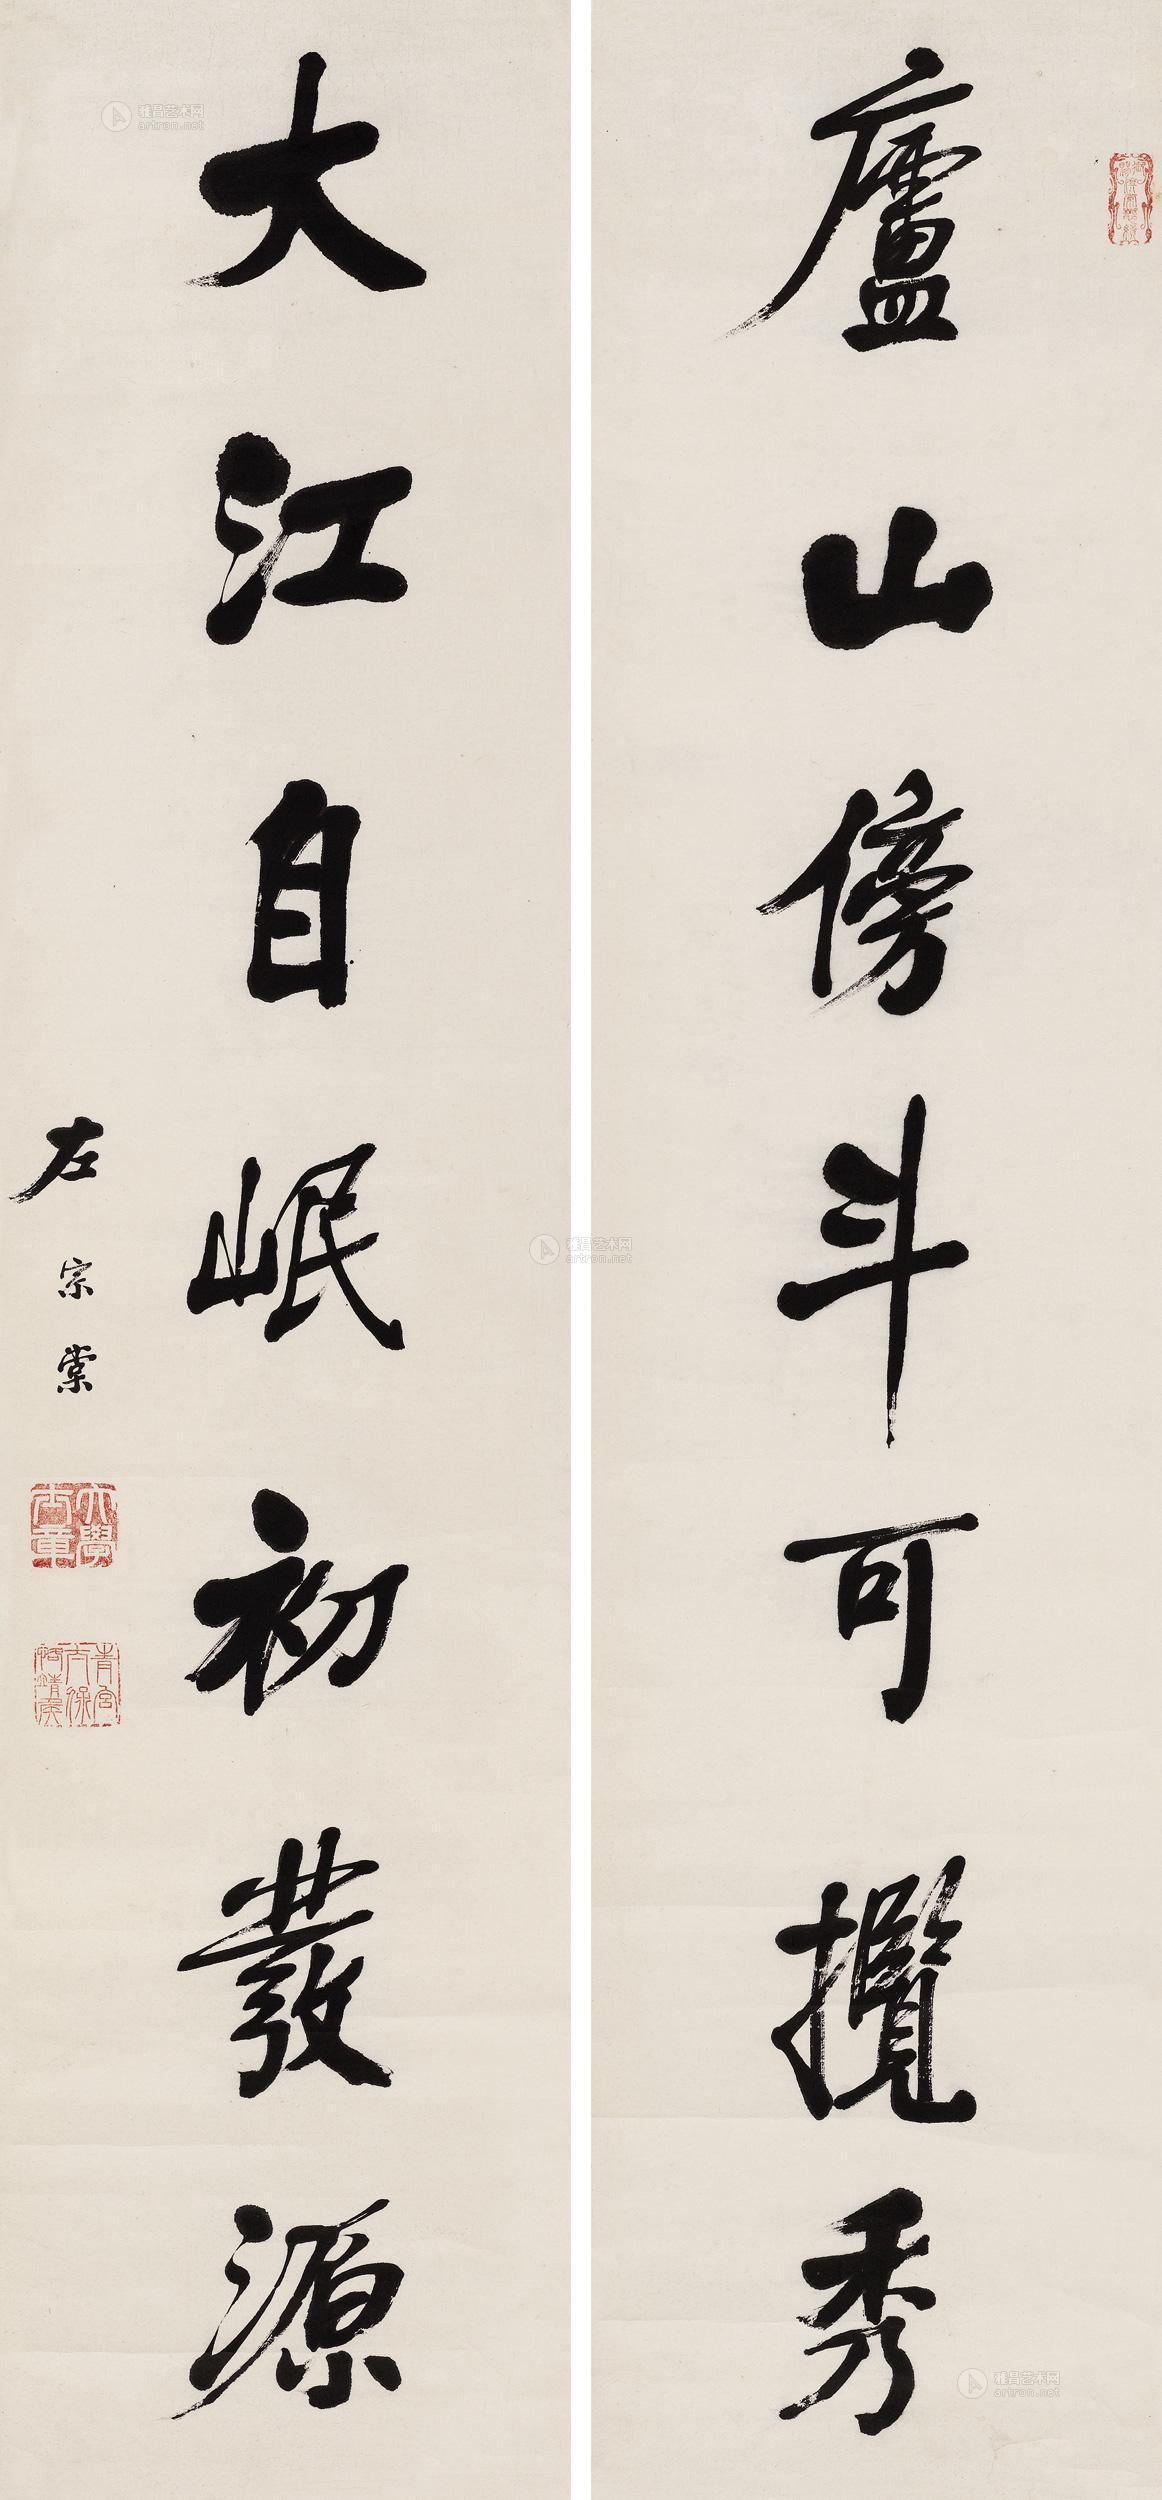 廬山傍斗可攬秀
大江自岷初發源
左宗棠
大學士章
青宮太保恪靖侯
雅昌艺术网
artron.net
雅昌艺术网
artron.net
雅昌艺术网
artron.net